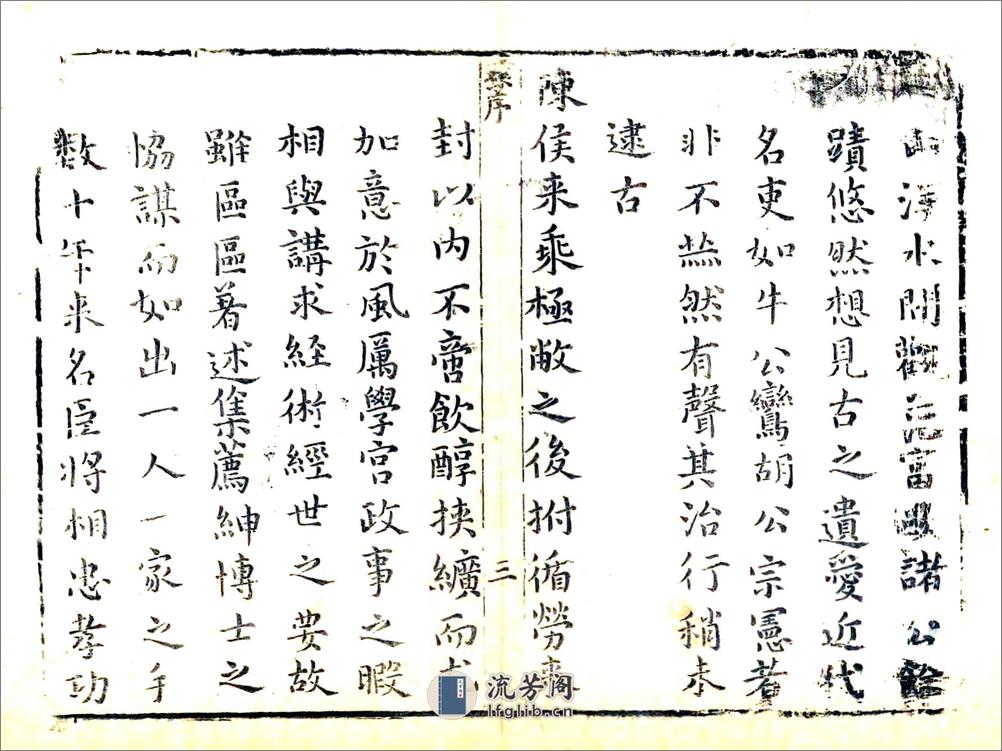 水間觀范富諸公
蹟悠然想見古之遺愛近代
名吏如牛公鸞胡公宗憲著
非不燕然有聲其治行稍未
逮古
陳侯来乘極敝之後拊循勞
序
三
封以内不啻飲醇挾纊而
加意於風厲學宮政事之暇
相與講求經術經世之要故
雖區區著述集薦紳博士之
恊謀而如出一人一家之手
數十年来名臣將相忠孝功
流芳阁
lfglib.cn